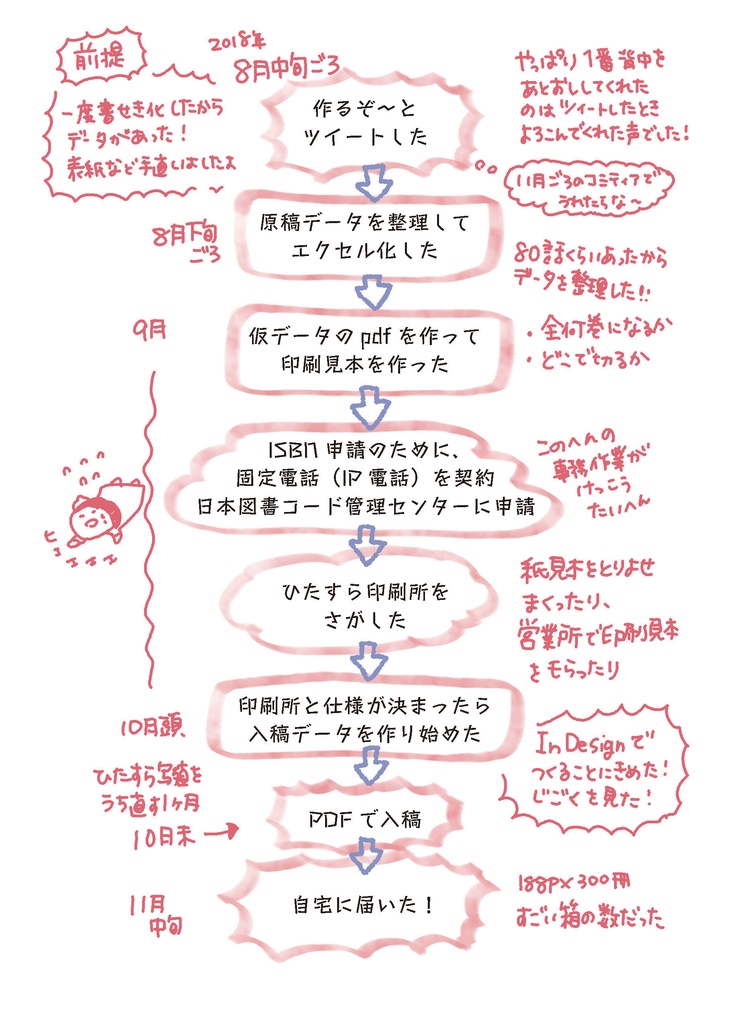 前提
2018年
8月中旬ごろ
一度書せき化したから
データがあった!
表紙など手直しはしたス
作るぞ〜と
ツイートした
やっぱり1番背中を
あとおししてくれた
のはツイートしたとき
よろこんでくれた声でした!
11月ごろのコミティアで
うれたらな〜
8月下旬
ごろ
原稿データを整理して
エクセル化した
80話くらいあったから
データを整理した!!
・全何巻になるか
・どこで切るか
9月
仮データのpdfを作って
印刷見本を作った
ISBN申請のために、
固定電話(IP電話)を契約
日本図書コード管理センターに申請
このへんの
事務作業が
けっこう
たいへん
ヒェェェェ
ひたすら印刷所を
さがした
紙見本をとりよせ
まくったり、
営業所で印刷見本
をもらったり
10月頭
印刷所と仕様が決まったら
入稿データを作り始めた
InDesignで
つくることにきめた!
じごくを見た!
ひたすら写植を
うち直す1ヶ月
10日末
PDFで入稿
11月
中旬
自宅に届いた!
188P×300冊
すごい箱の数だった